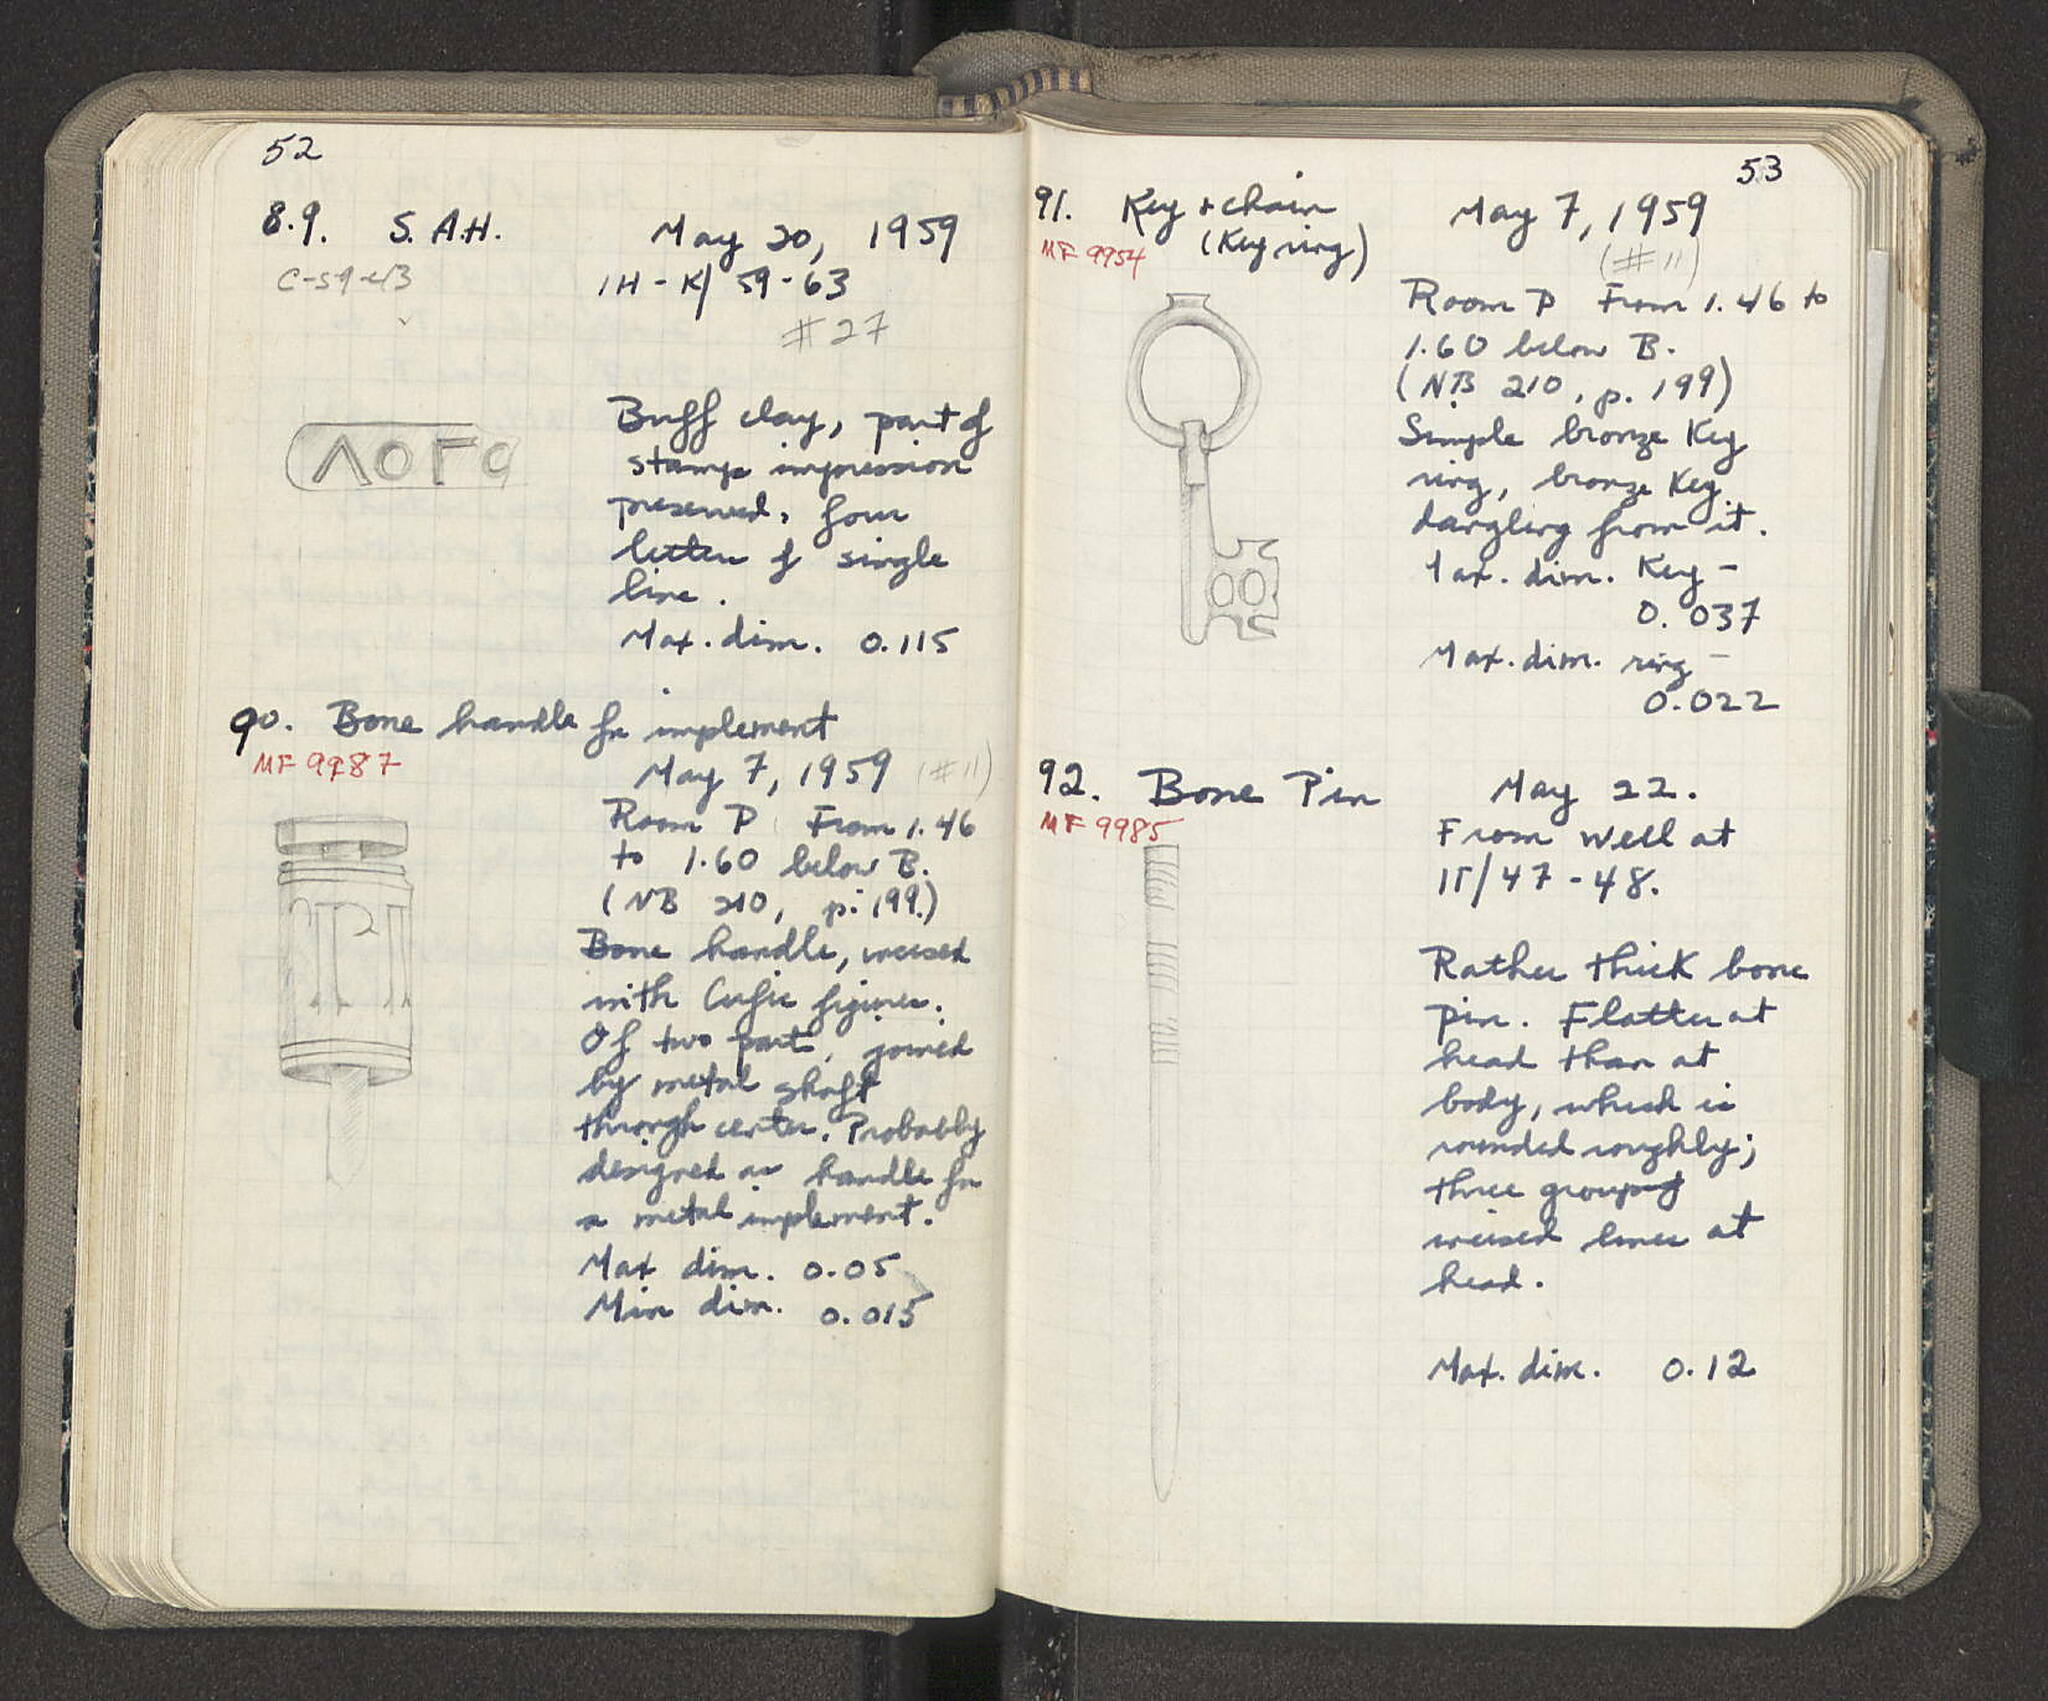 52
89. S.A.H. May 20, 1959
C-59-43 1H-K/ 59-63
#27
ΛΟΓΟ
Buff clay, part of
stamp impression
preserved, four
letters of single
line.
Max. dim. 0.115
90. Bone handle for implement
MF 9987 May 7, 1959 (#11)
Room P From 1.46
to 1.60 below B.
(NB 210, p. 199.)
Bone handle, incised
with Cufic figures.
Of two parts, joined
by metal shaft
through center. Probably
designed as handle for
a metal implement.
Max dim. 0.05
Min dim. 0.015
53
91. Key + chain May 7, 1959
MF 9954 (Key ring) (#11)
Room P From 1.46 to
1.60 below B.
(NB 210, p. 199)
Simple bronze Key
ring, bronze Key
dangling from it.
Max. dim. Key -
0.037
Max. dim. ring -
0.022
92. Bone Pin May 22.
MF 9985 From well at
/47-48.
Rather thick bone
pin. Flatter at
head than at
body, which is
rounded roughly;
three groups of
incised lines at
head.
Max. dim. 0.12